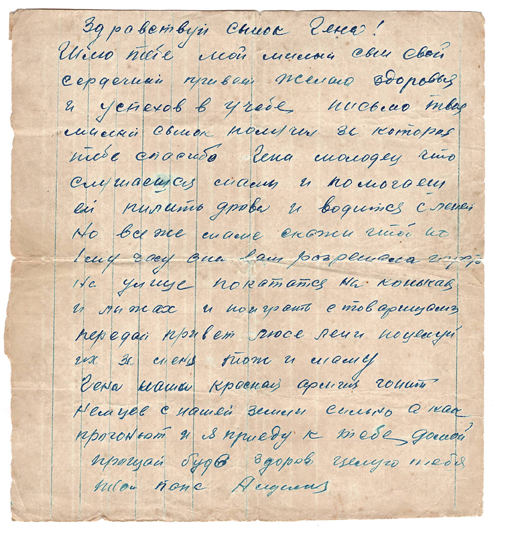 Здравствуй сынок Гена!
Шлю тебе мой милый сын свой
сердечный привет желаю здоровья
и успехов в учебе письмо твое
милый сынок получил за которое
тебе спасибо Гена молодец что
слушаешся мамы и помогаеш
ей пилить дрова и водится с леней
Но все же маме скажи чтоб их
часу она вам разрешала
На улице покататся на коньках
и лыжах и поиграть с товарищами
передай привет люсе лени поцелуй
их за меня тож и маму
Гена наша красная армия гонит
немцев с нашей земли сильно а как
прогонют и я приеду к тебе домой
прощай будь здоров целую тебя
твой папа